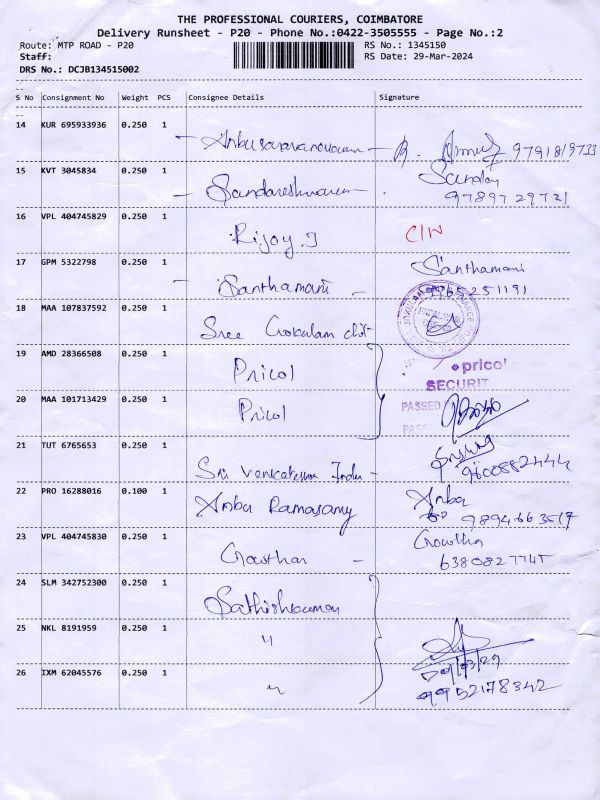 THE PROFESSIONAL COURIERS, COIMBATORE
Delivery Runsheet - P20 - Phone No.:0422-3505555 - Page No.:2
Route: MTP ROAD - P20
RS No.: 1345150
Staff:
RS Date: 29-Mar-2024
DRS No.: DCJB134515002
S No Consignment No Weight PCS Consignee Details Signature
14 KUR 695933936 0.250 1
Anbusaravanakumar 9791819733
15 KVT 3045834 0.250 1
Sundareshwaran Sundar
9789729721
16 VPL 404745829 0.250 1
Rijoy J C/N
17 GPM 5322798 0.250 1
Santhamani Santhamani
9965251191
18 MAA 107837592 0.250 1
Sree Gokulam chit
19 AMD 28366508 0.250 1
Pricol pricol
SECURIT
20 MAA 101713429 0.250 1
Pricol PASSED
21 TUT 6765653 0.250 1
Sri Venkateswara
9600882444
22 PRO 16288016 0.100 1
Anbu Ramasamy Anbu
9894663517
23 VPL 404745830 0.250 1
Gowtham Gowtham
24 SLM 342752300 0.250 1
Sathishkumar
25 NKL 8191959 0.250 1
"
26 IXM 62045576 0.250 1
"
9952178342